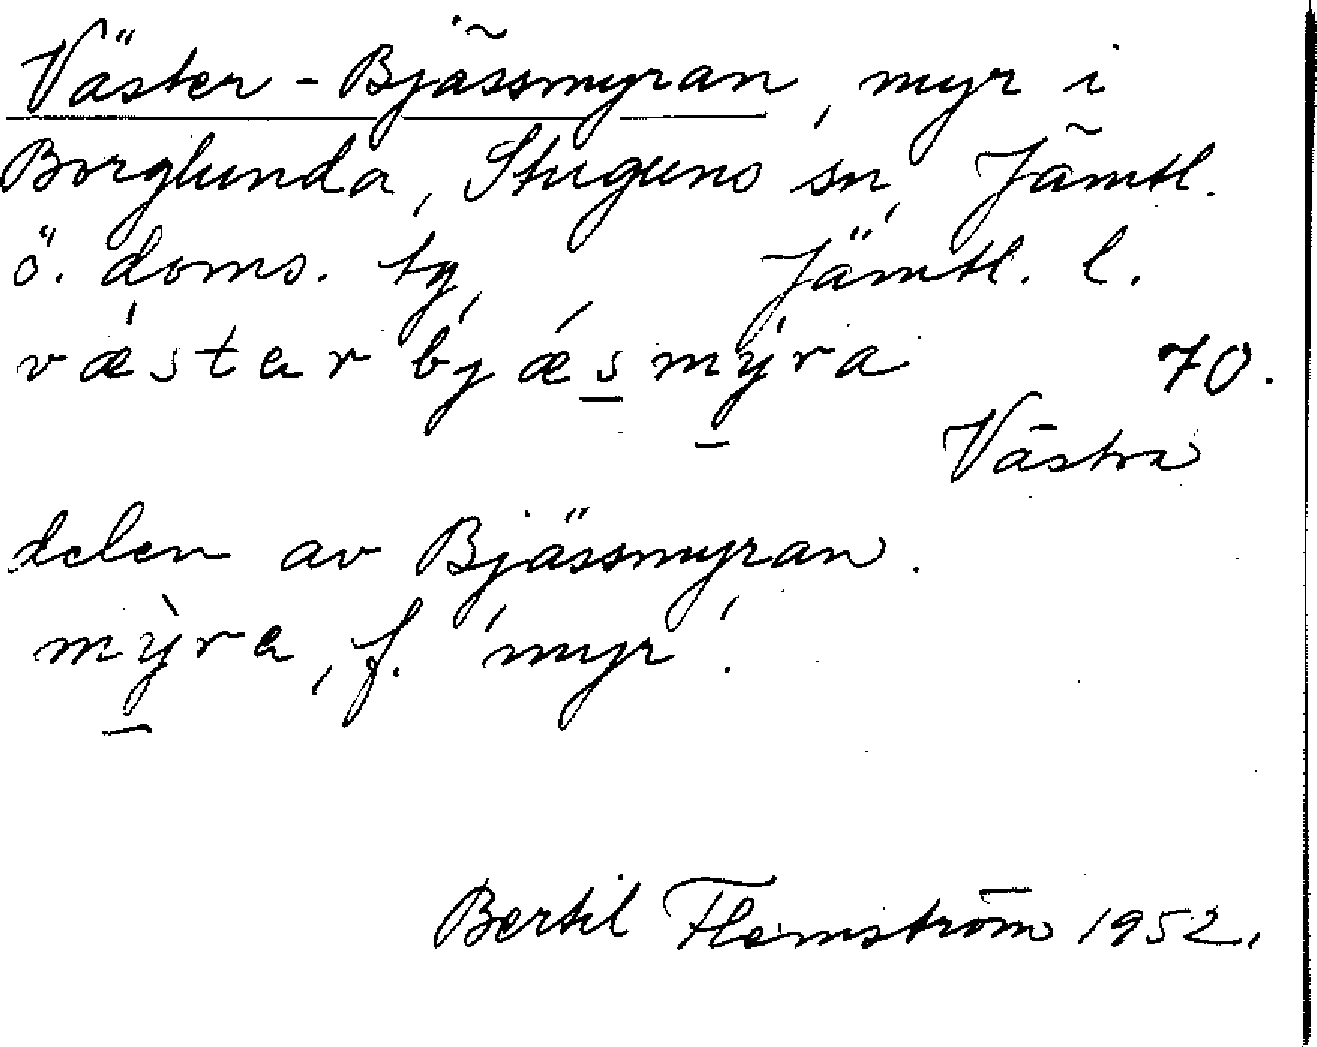 Väster-Bjässmyran, myr i
Borglunda, Stuguns sn, Jämtl.
ö. doms. tg, Jämtl. l.
væ̀star bjǽs̲mẏ̲ra 70.
Västra
delen av Bjässmyran.
mỳ̲ra, f. 'myr'.
Bertil Flemström 1952.